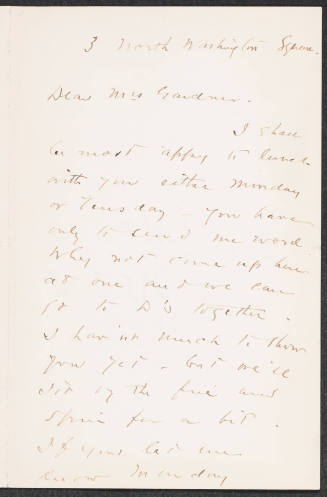 3 North Washington Square.
Dear Mrs Gardner.
I shall
be most 'appy to lunch
with you either Monday
or Tuesday - You have
only to send me word
Why not come up here
at one and we can
go to D's together.
I haven't much to show
you yet - but we'll
sit by the fire and
spin for a bit.
If you let me
know Monday